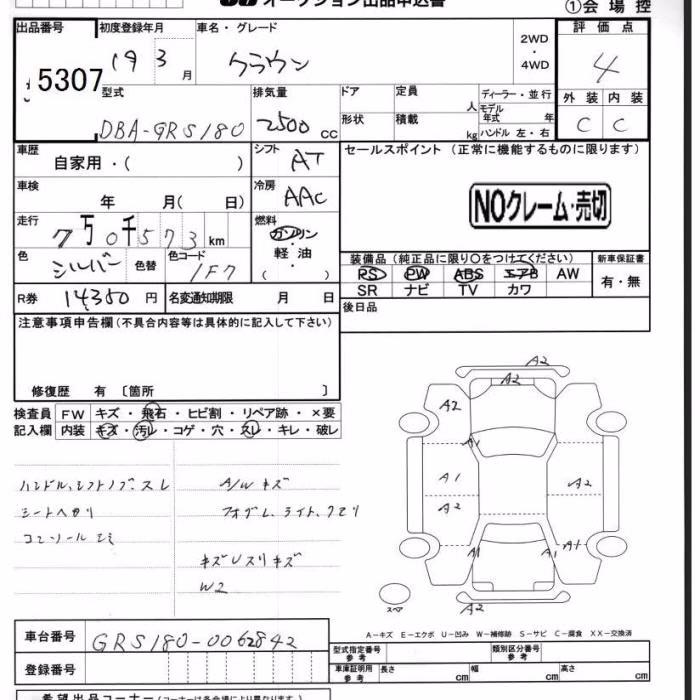 オークション出品申込書
①会場控
出品番号 初度登録年月 車名・グレード 2WD・4WD 評価点
5307 19 3月 クラウン 4
型式 排気量 ドア 定員 人 ディーラー・並行 外装 内装
DBA-GRS180 2500cc 形状 積載 kg モデル年式 年 ハンドル 左・右 C C
車歴 自家用・( ) シフト AT セールスポイント (正常に機能するものに限ります)
車検 年 月( 日) 冷房 AAC NOクレーム・売切
走行 7万0千573km 燃料 ガソリン・軽油・( )
色 シルバー 色替 色コード 1F7 装備品(純正品に限り○をつけてください) 新車保証書
PS PW ABS エアB AW 有・無
R券 14350円 名変通知期限 月 日 SR ナビ TV カワ
注意事項申告欄(不具合内容等は具体的に記入して下さい) 後日品
修復歴 有〔箇所 〕
検査員 FW キズ・飛石・ヒビ割・リペア跡・×要
記入欄 内装 キズ・汚レ・コゲ・穴・スレ・キレ・破レ
ハンドル、シフトノブ、スレ A/W キズ
シートヘタリ フォグL、ライト、クモリ
キズ U スリキズ
W2
A2
A2
A2
A1
A1
A2
A2
A1
A1
A1
A2
スペア
A-キズ E-エクボ U-凹み W-補修跡 S-サビ C-腐食 XX-交換済
車台番号 GRS180-0062842 型式指定番号 参考 類別区分番号 参考
登録番号 車庫証明用 参考 長さ cm 幅 cm 高さ cm
希望出品コーナー(コーナーは各会場により異なります)